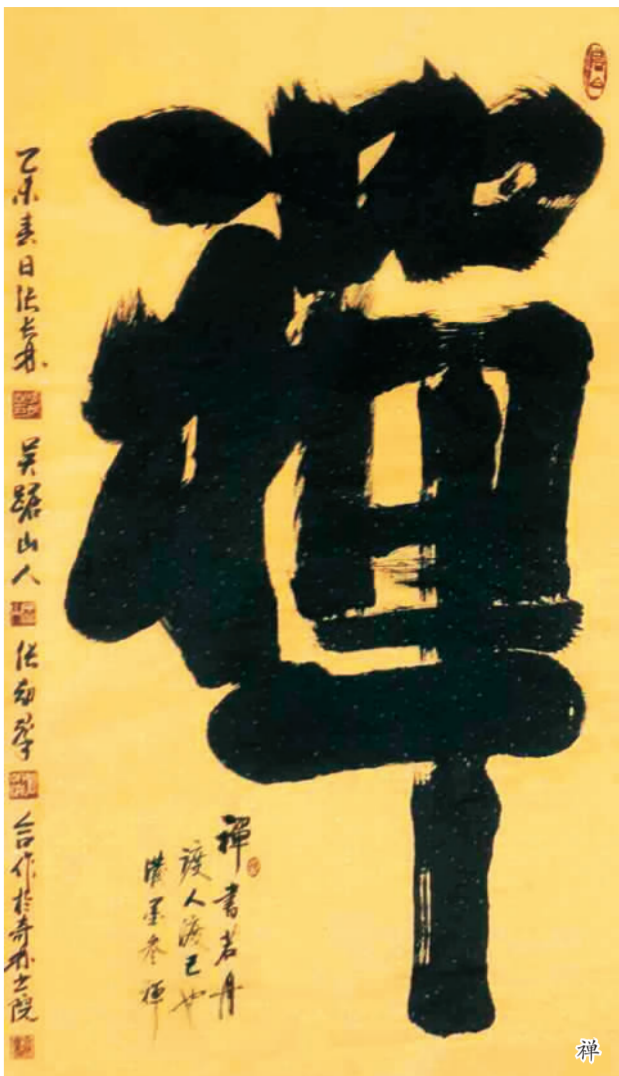 禪
禪書若舟
渡人渡己也
濃墨參禪
乙未春日張大林
吴踞山人
張劲華
合作於奇林書院
禅